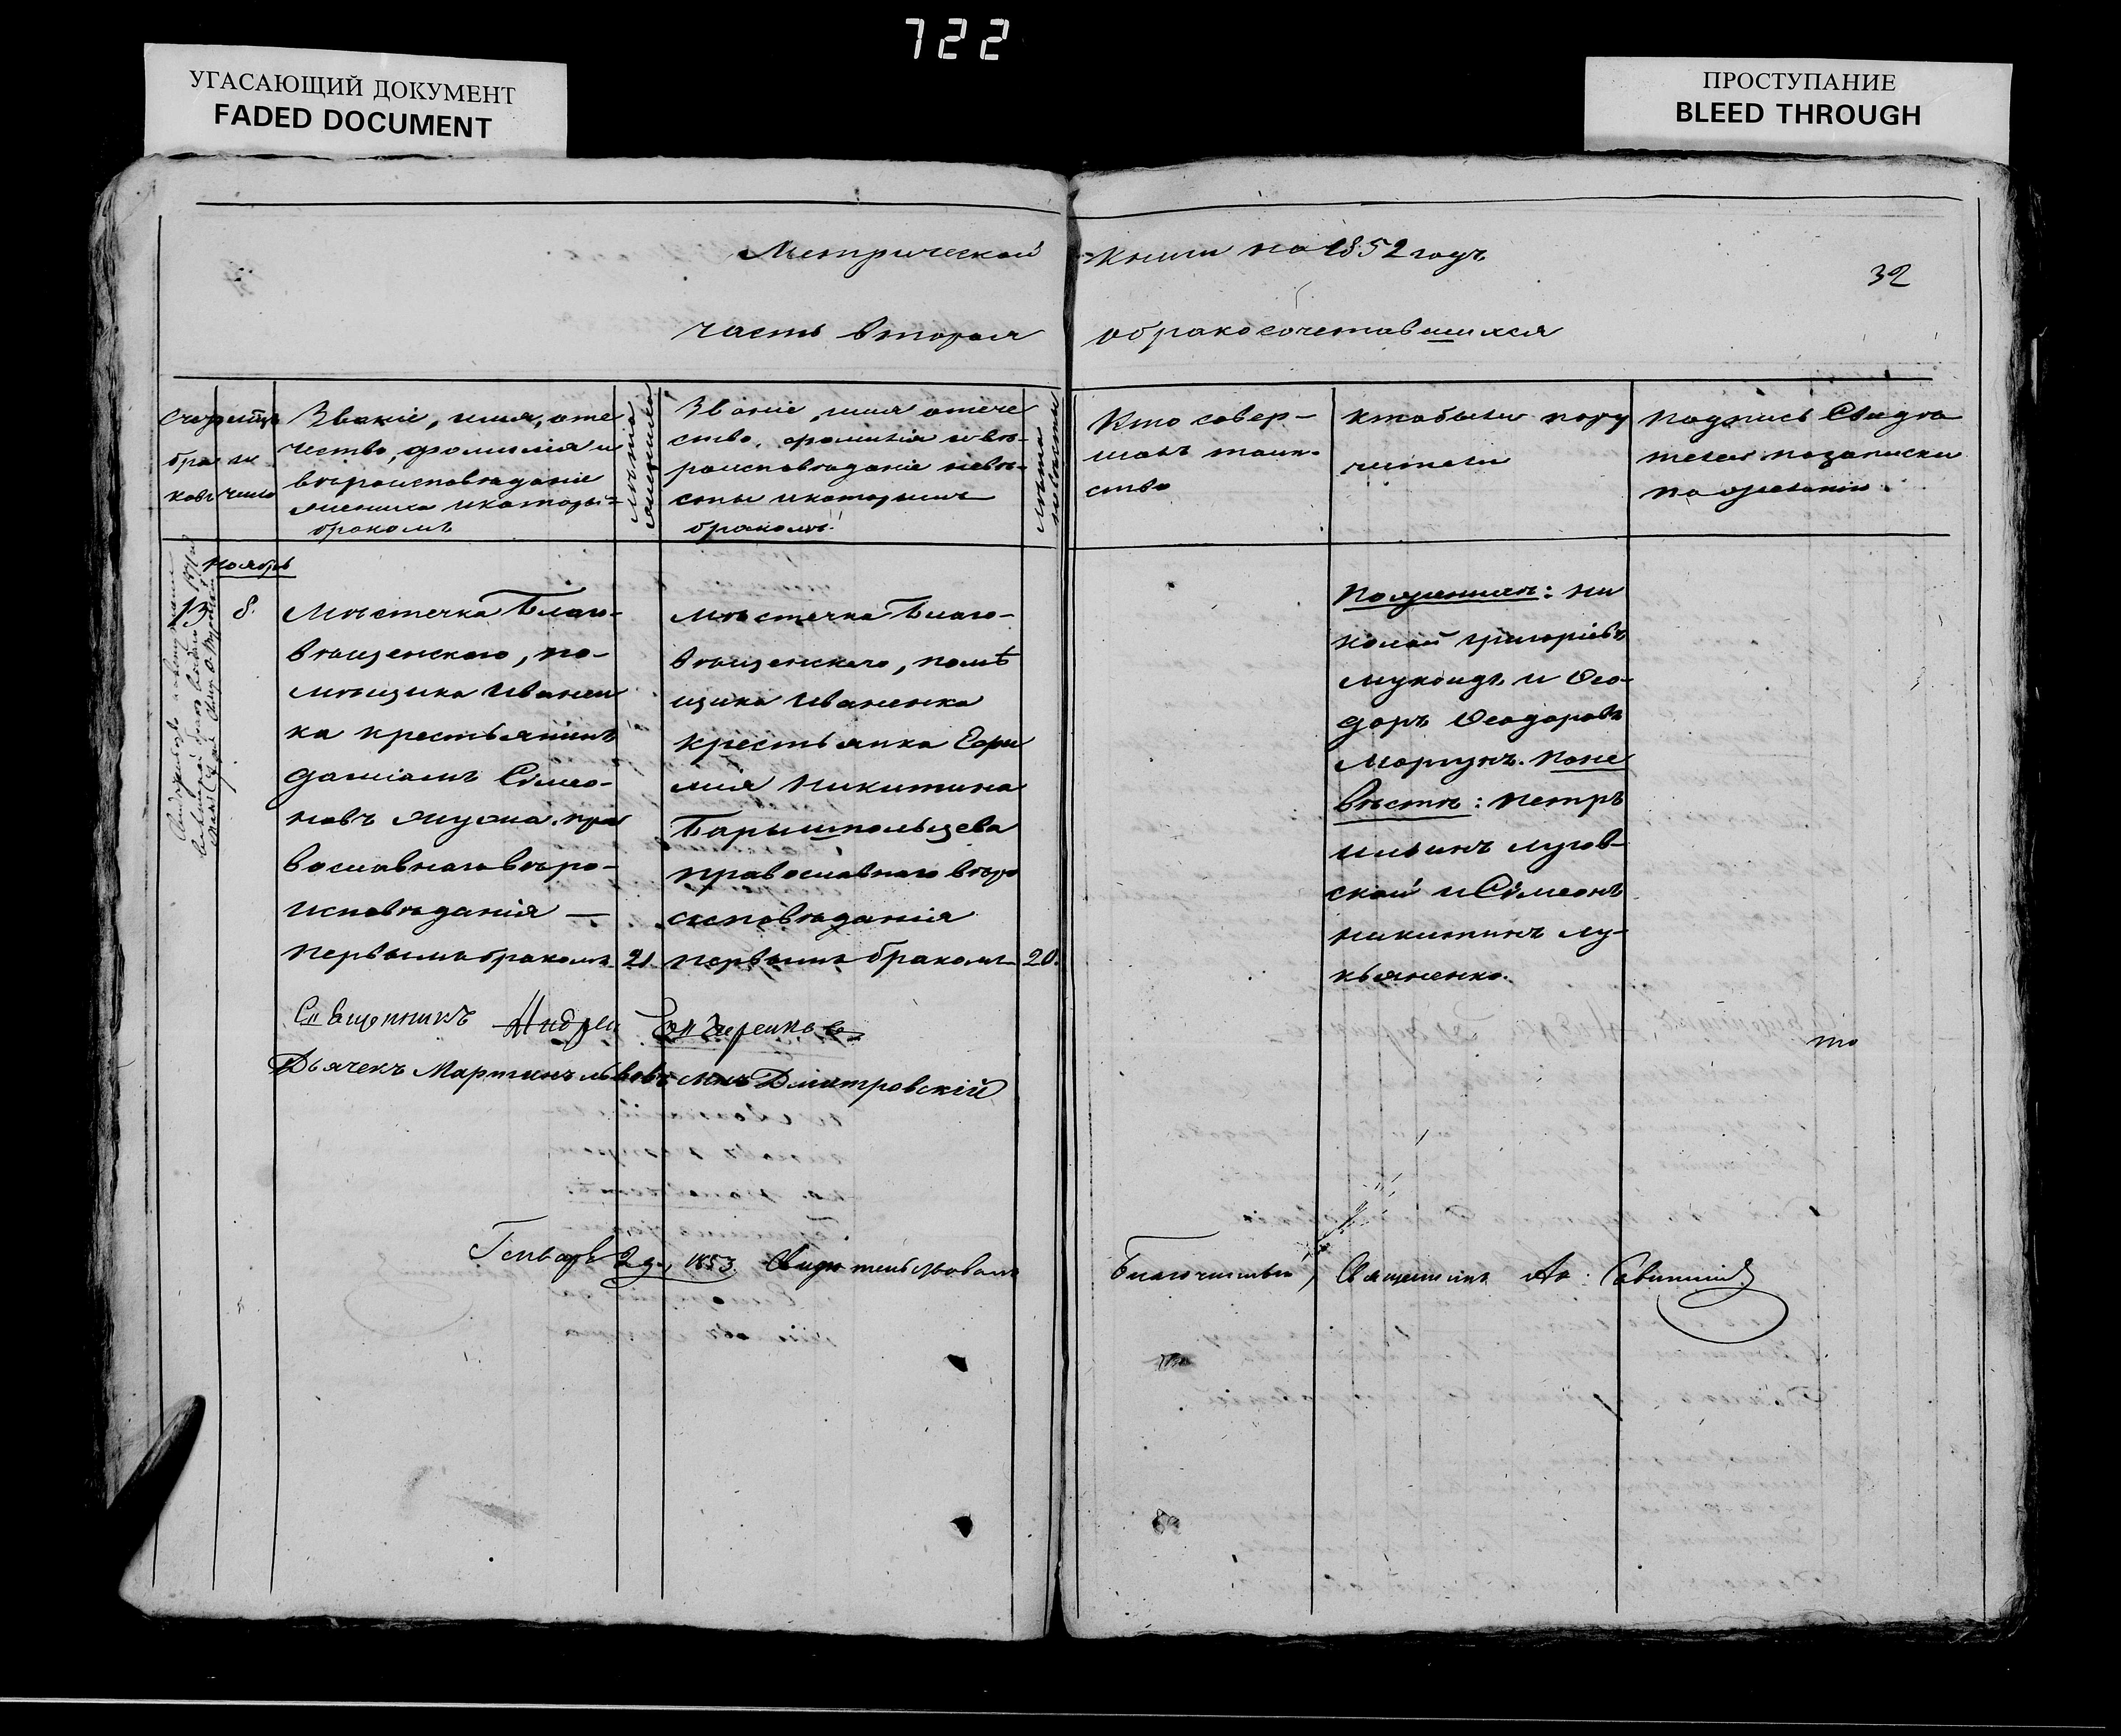 722
УГАСАЮЩИЙ ДОКУМЕНТ
FADED DOCUMENT
ПРОСТУПАНИЕ
BLEED THROUGH
Метрической книги на 1852 годъ
32
часть вторая о бракосочетавшихся
Счетъ
бра
ковъ
число
Званіе, имя, оте
чество, фамилія и
вѣроисповѣданіе
жениха и которы=
бракомъ
Лѣта
жениха
Званіе, имя отече
ство, фамилія и вѣ-
роисповѣданіе невѣ-
сты и которымъ
бракомъ.
Лѣта
невѣсты
Кто совер-
шалъ таин-
ство
Кто были пору
чители
Подпись Свидѣ
телей по записки
по желанію.
Ноябрь
13
8.
Мѣстечка Благо-
вѣщенского, по-
мѣщика Иванен
ка крестьянинъ
Даміанъ Сімео-
новъ пра
вославнаго вѣро-
исповѣданія —
первымъ бракомъ
21
Мѣстечка Благо-
вѣщенскаго, помѣ
щика Иваненка
крестьянка Ефи
мія Никитина
Барышпольцева
православнаго вѣро
исповѣданія
первымъ бракомъ
20.
По женихѣ: Ни
колай Григоріевъ
и Ѳео-
доръ Ѳеодоровъ
Моргунъ. По не
вѣстѣ: Петръ
Ильинъ Лугов-
ской и Сімеонъ
Никитинъ Лу-
кьяненко.
Священникъ Андрей
Дьячекъ Мартинъ Дмитровскій
то
Генваря 2 д., 1853. Свидѣтельствовалъ Благочинный, Священникъ